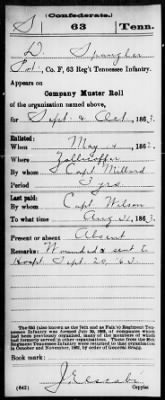 (Confederate.)
S 63 Tenn.
D. Spangher
Pvt., Co. F, 63 Reg't Tennessee Infantry.
Appears on
Company Muster Roll
of the organization named above,
for Sept & Oct, 1863.
Enlisted:
When May 14, 1862.
Where Zollicoffer
By whom Capt Millard
Period 3 yrs
Last paid:
By whom Capt Wilson
To what time Aug 31, 1863.
Present or absent Absent
Remarks: Wounded & sent to
Hospt Sept. 20, 63
Book mark:
(642) Copyist.